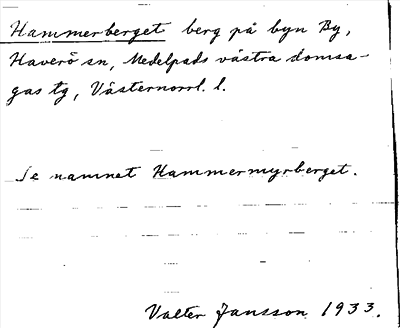 Hammerberget berg på byn By,
Haverö sn, Medelpads västra domsa-
gas tg, Västernorrl. l.
Se namnet Hammermyrberget.
Valter Jansson 1933.